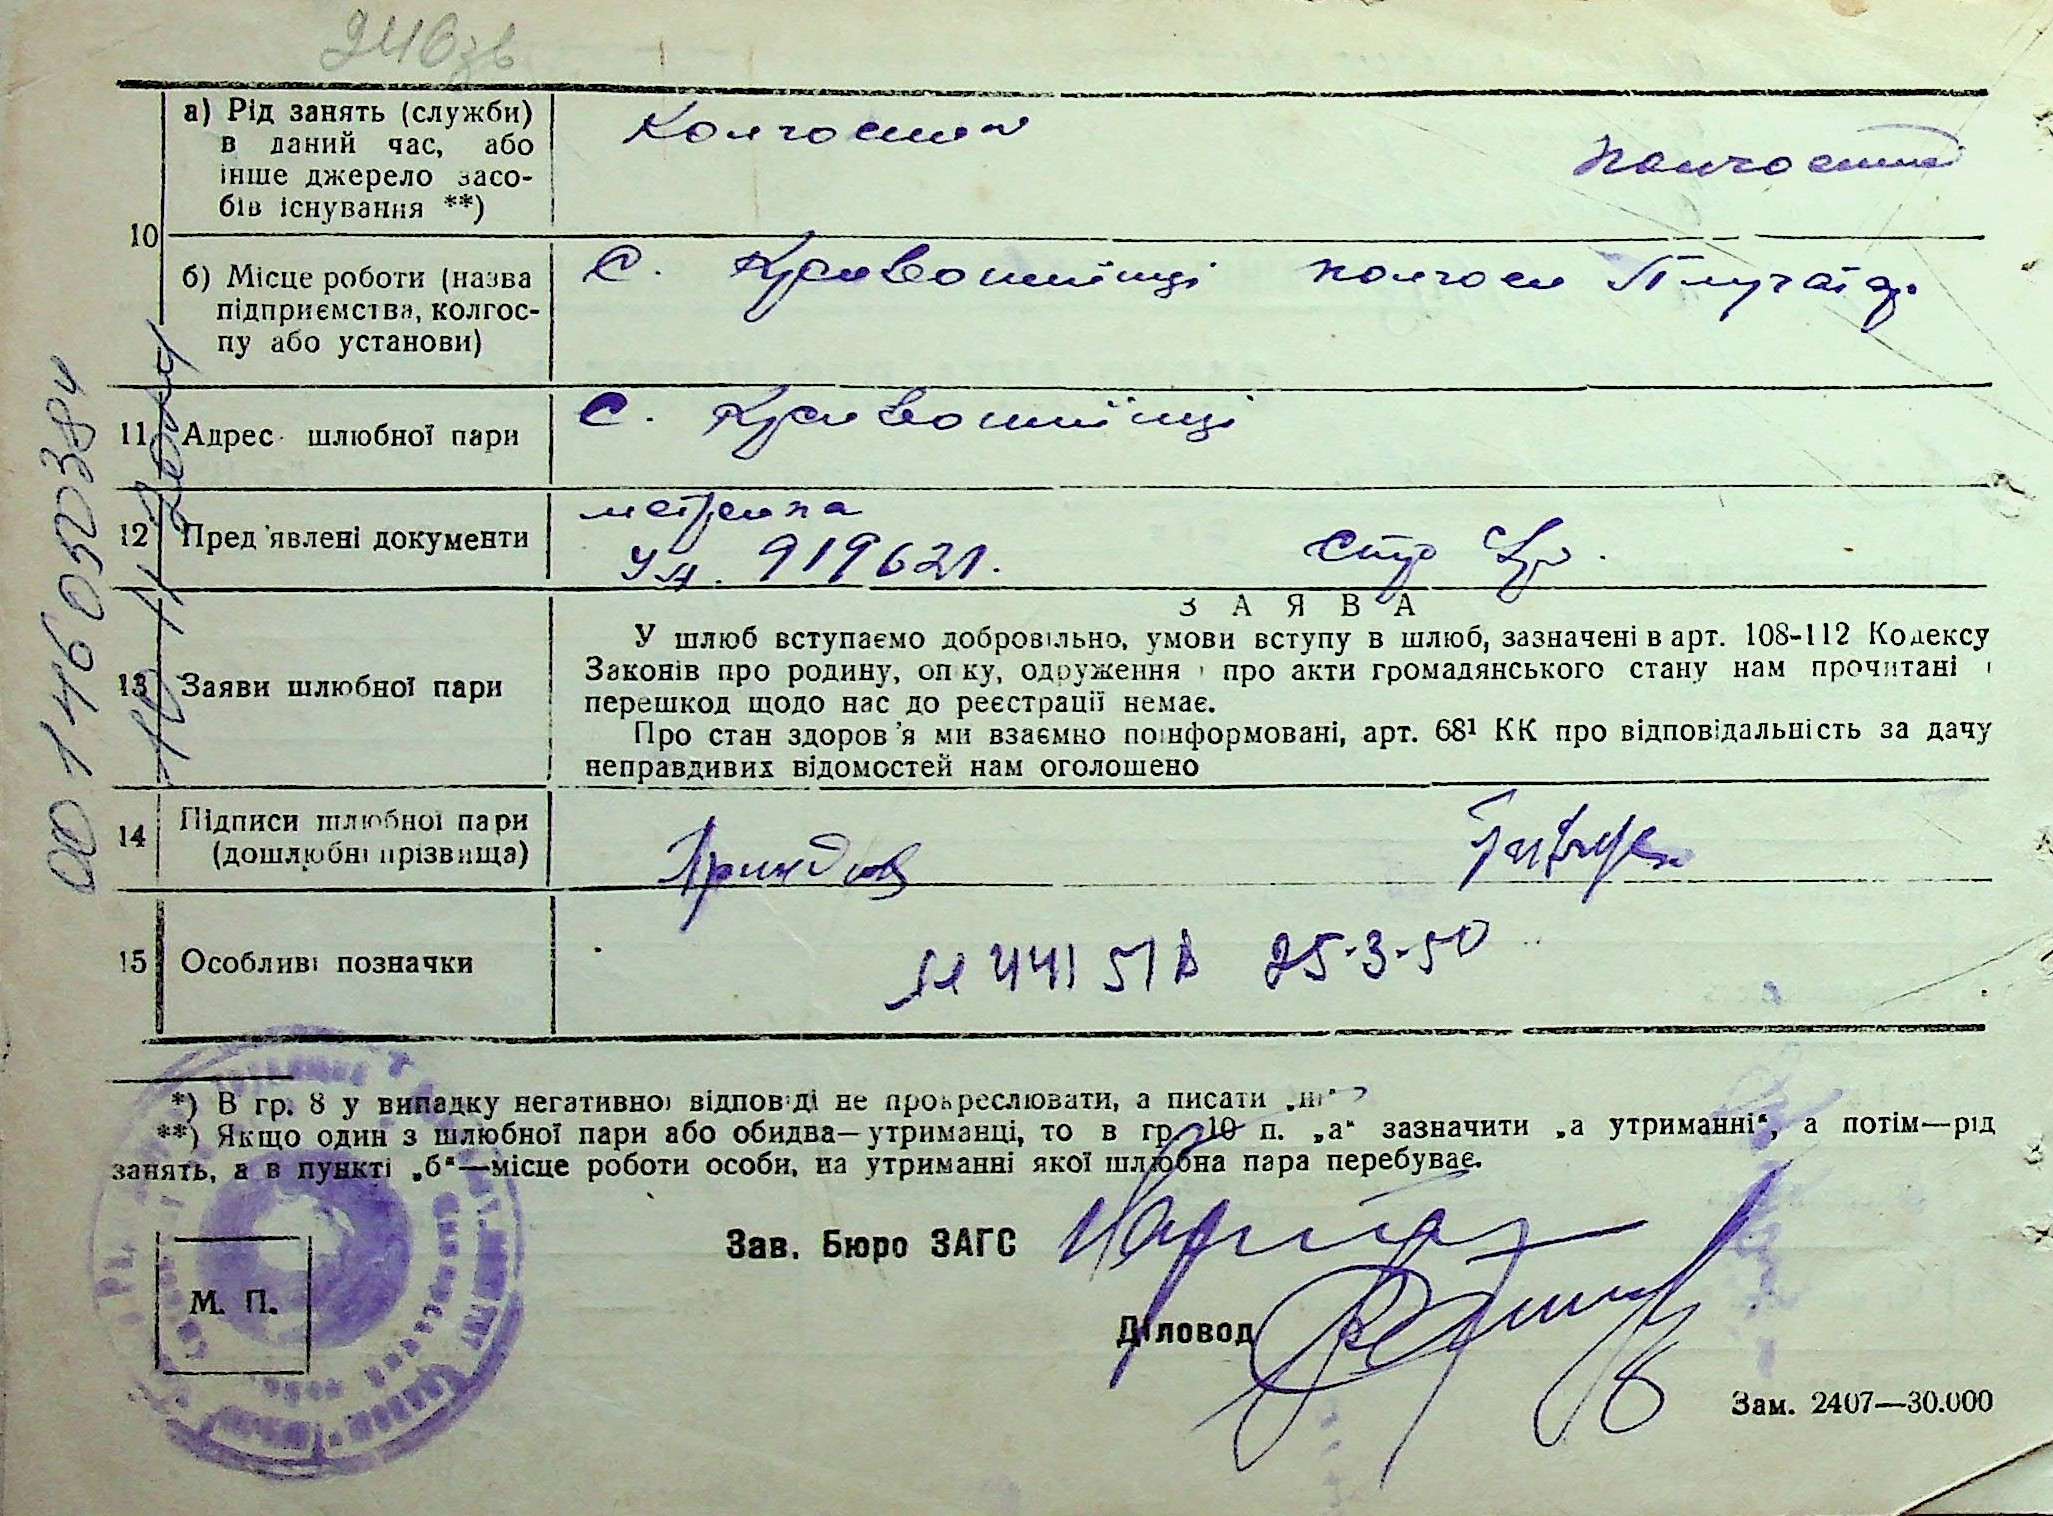 246зв
а) Рід занять (служби)
в даний час, або
інше джерело засо-
бів існування **)
10
Колгоспн
Колгоспн
б) Місце роботи (назва
підприємства, колгос-
пу або установи)
С. Кривошиїнці колгосп Плугатар
11 Адрес шлюбної пари
С. Кривошиїнці
12 Пред'явлені документи
метрика
УА. 919621.
13 Заяви шлюбної пари
ЗАЯВА
У шлюб вступаємо добровільно, умови вступу в шлюб, зазначені в арт. 108-112 Кодексу
Законів про родину, опіку, одруження і про акти громадянського стану нам прочитані і
перешкод щодо нас до реєстрації немає.
Про стан здоров'я ми взаємно поінформовані, арт. 68¹ КК про відповідальність за дачу
неправдивих відомостей нам оголошено
14 Підписи шлюбної пари
(дошлюбні прізвища)
15 Особливі позначки
25-3-50
00146050384
*) В гр. 8 у випадку негативної відповіді не прокреслювати, а писати „ні"
**) Якщо один з шлюбної пари або обидва—утриманці, то в гр. 10 п. „а" зазначити „а утриманні", а потім—рід
занять, а в пункті „б"—місце роботи особи, на утриманні якої шлюбна пара перебуває.
Зав. Бюро ЗАГС
М. П.
Діловод
Зам. 2407—30.000